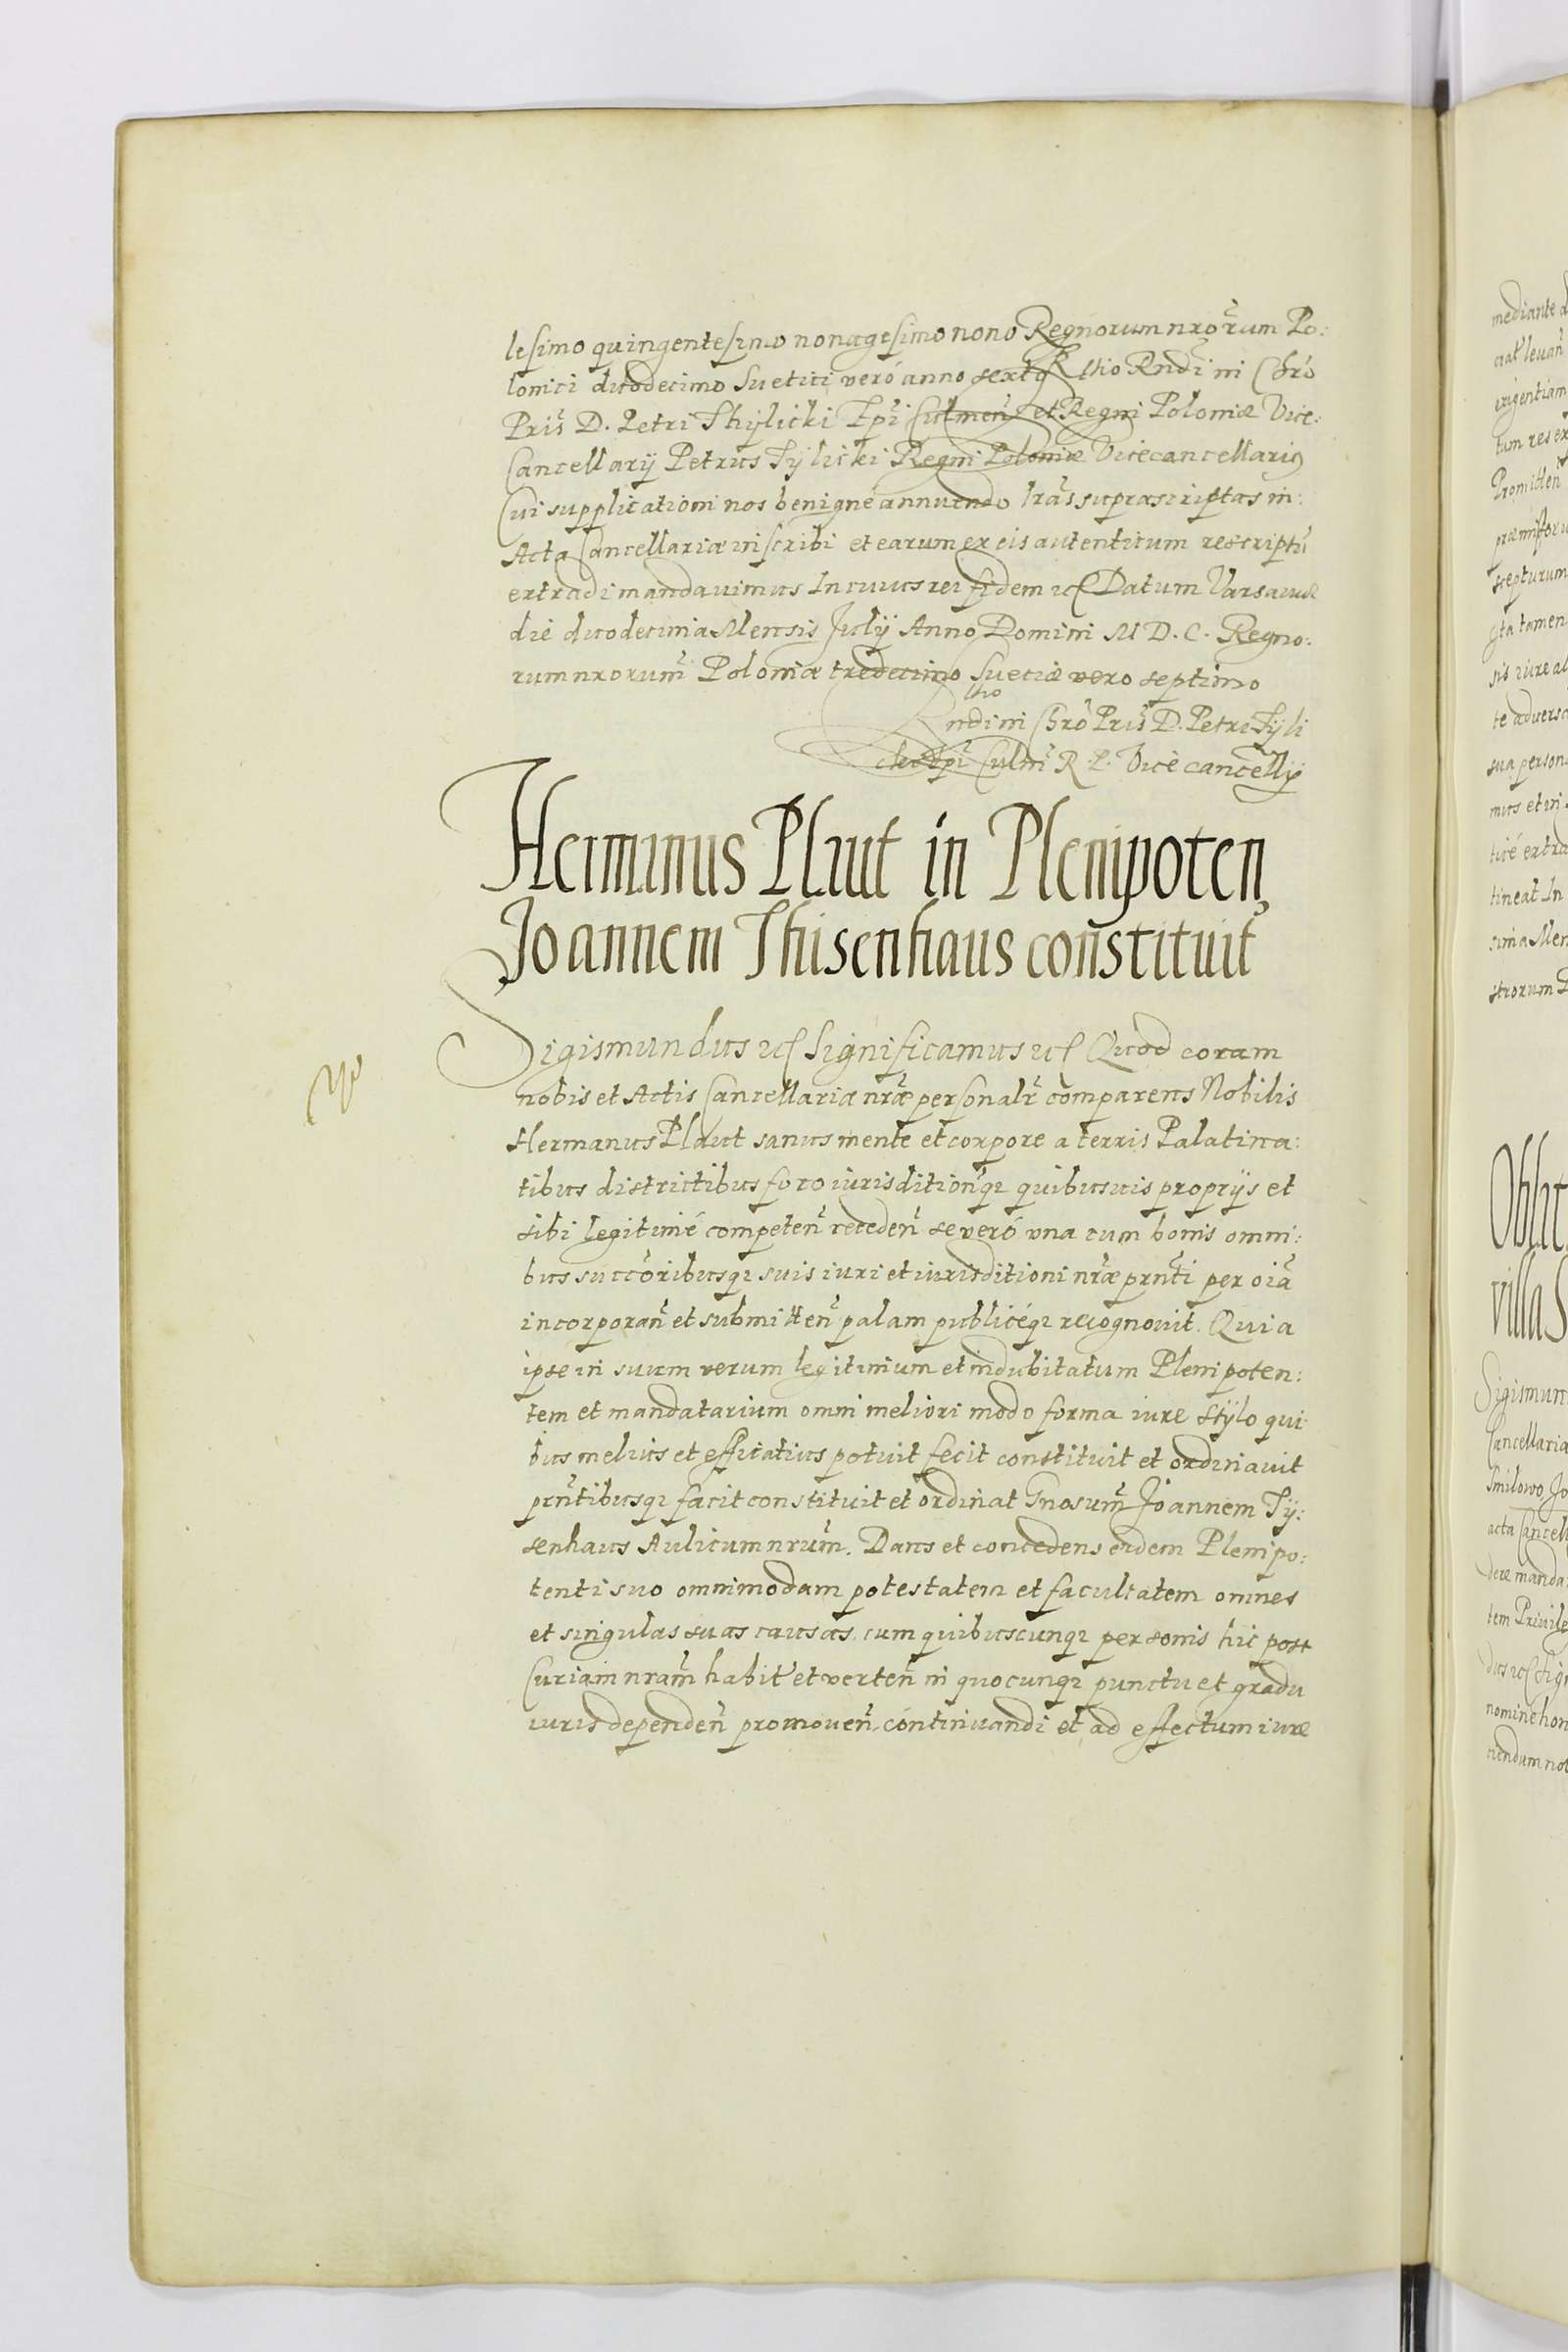 lesimo quingentesimo nonagesimo nono Regnorum nrõrum Po:
lonici duodecimo Suetici veró anno sexto Rllio Rndi in Chrõ
Pris D. Petri Thÿlicki Epi Culmen et Regni Poloniæ Vice:
Cancellarÿ Petrus Tÿlicki Regni Poloniæ Vicecancellari9
Cui supplicationi nos benigné annuendo lrãs suprascriptas in:
Acta Cancellariæ inscribi et earum ex eis autenticum rescriptũ
extradi mandauimus In cuius rei fidem etc Datum Varsauiæ
die duodecima Mensis Julÿ Anno Domini M D. C. Regno:
rum nrorum Poloniæ tredecimo Sueciæ vero septimo
Rndi in Chrõ Pris D. Petri Tÿli
cki Epi Culm R. P. Vice cancellÿ
Herminus Plaut in Plenipoten,
Joannem Thisenhaus constituit
Sigismundus etc Significamus etc Quod coram
nobis et Actis Cancellariæ nræ personalr comparens Nobilis
Hermanus Plaut sanus mente et corpore a terris Palatina:
tibus districtibus foro iurisditionq3 quibusuis proprÿs et
sibi legitimé competeñ recedeñ se veró vna cum bonis omni:
bus succoribusq3 suis iuri et iurisditioni nræ prnti per oia
incorporañ et submitteñ palam publicéq3 recognouit. Quia
ipse in suum verum legitimum et indubitatum Plenipoten:
tem et mandatarium omni meliori modo forma iure stÿlo qui
bus melius et efficatius potuit fecit constituit et ordinauit
prntibusq3 facit constituit et ordinat Gnosum Joannem Tÿ:
senhaus Aulicum nrum. Dans et concedens eidem Plenipo:
tenti suo omnimodam potestatem et facultatem omnes
et singulas suas causas cum quibuscunq3 personis hic post
Curiam nram habit et verteñ in quocunq3 punctu et gradu
iuris dependeñ promoueñ. continuandi et ad effectum iuræ
mediante
exigentiam
tum res ex
Promitteñ
septurum
ita tamen
sis iure al
te aduersa
sua person
mus et in
tiré extra
tineat In
sima Men
strorum
Oblat
villa S
Sigismun
Cancellaria
Smilowo Jo
acta Cancell
dere manda
tem Priuile
dus etc Sig
nomine hon